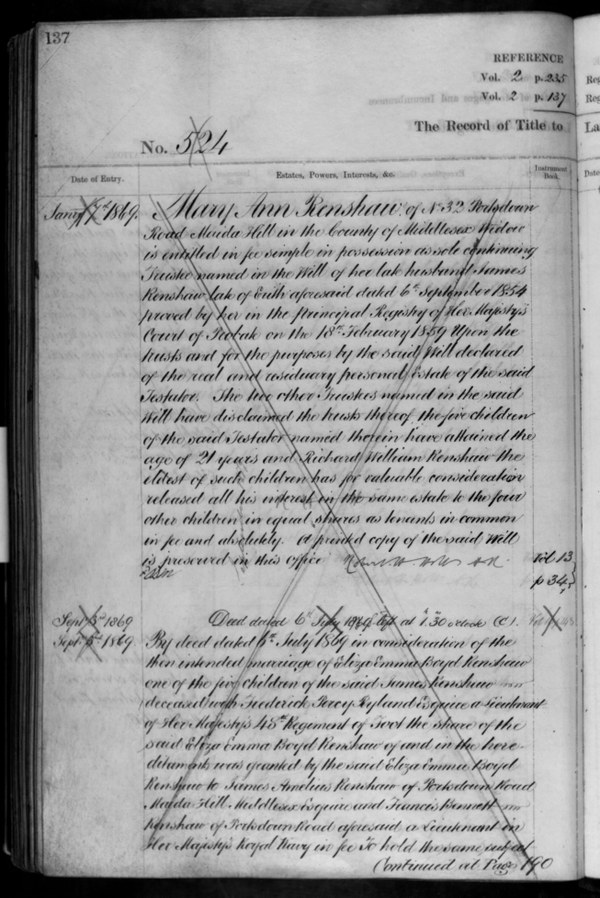 137
REFERENCE
Vol. 2 p. 235
Vol. 2 p. 137
The Record of Title to
La
No. 524
Date of Entry.
Estates, Powers, Interests, &c.
Instrument Book.
Jany 1869.
Mary Ann Renshaw of No 32 Portsdown
Road Maida Hill in the County of Middlesex Widow
is entitled in fee simple in possession as sole continuing
Trustee named in the Will of her late husband James
Renshaw late of aforesaid dated 6th September 1854
proved by her in the Principal Registry of Her Majesty's
Court of Probate on the 18th February 1859 Upon the
trusts and for the purposes by the said Will declared
of the real and residuary personal Estate of the said
Testator. The two other Trustees named in the said
Will have disclaimed the trusts thereof the five children
of the said Testator named therein have attained the
age of 21 years and Richard William Renshaw the
eldest of such children has for valuable consideration
released all his interest in the same estate to the four
other children in equal shares as tenants in common
in fee and absolutely. A printed copy of the said Will
is preserved in this office
Vol 13
p 34
Sept 1869
Deed dated 6th July 1869 at 1.30 o'clock
Sept 1869
By deed dated 6th July 1869 in consideration of the
then intended marriage of Eliza Emma Boyd Renshaw
one of the five children of the said James Renshaw
deceased with Frederick Percy Ryland Esquire a Lieutenant
of Her Majesty's 48th Regiment of Foot the share of the
said Eliza Emma Boyd Renshaw of and in the here-
ditaments was granted by the said Eliza Emma Boyd
Renshaw to James Amelius Renshaw of Portsdown Road
Maida Hill Middlesex Esquire and Francis Bennett
Renshaw of Portsdown Road aforesaid a Lieutenant in
Her Majesty's Royal Navy in fee To hold the same subject
Continued at Page 190